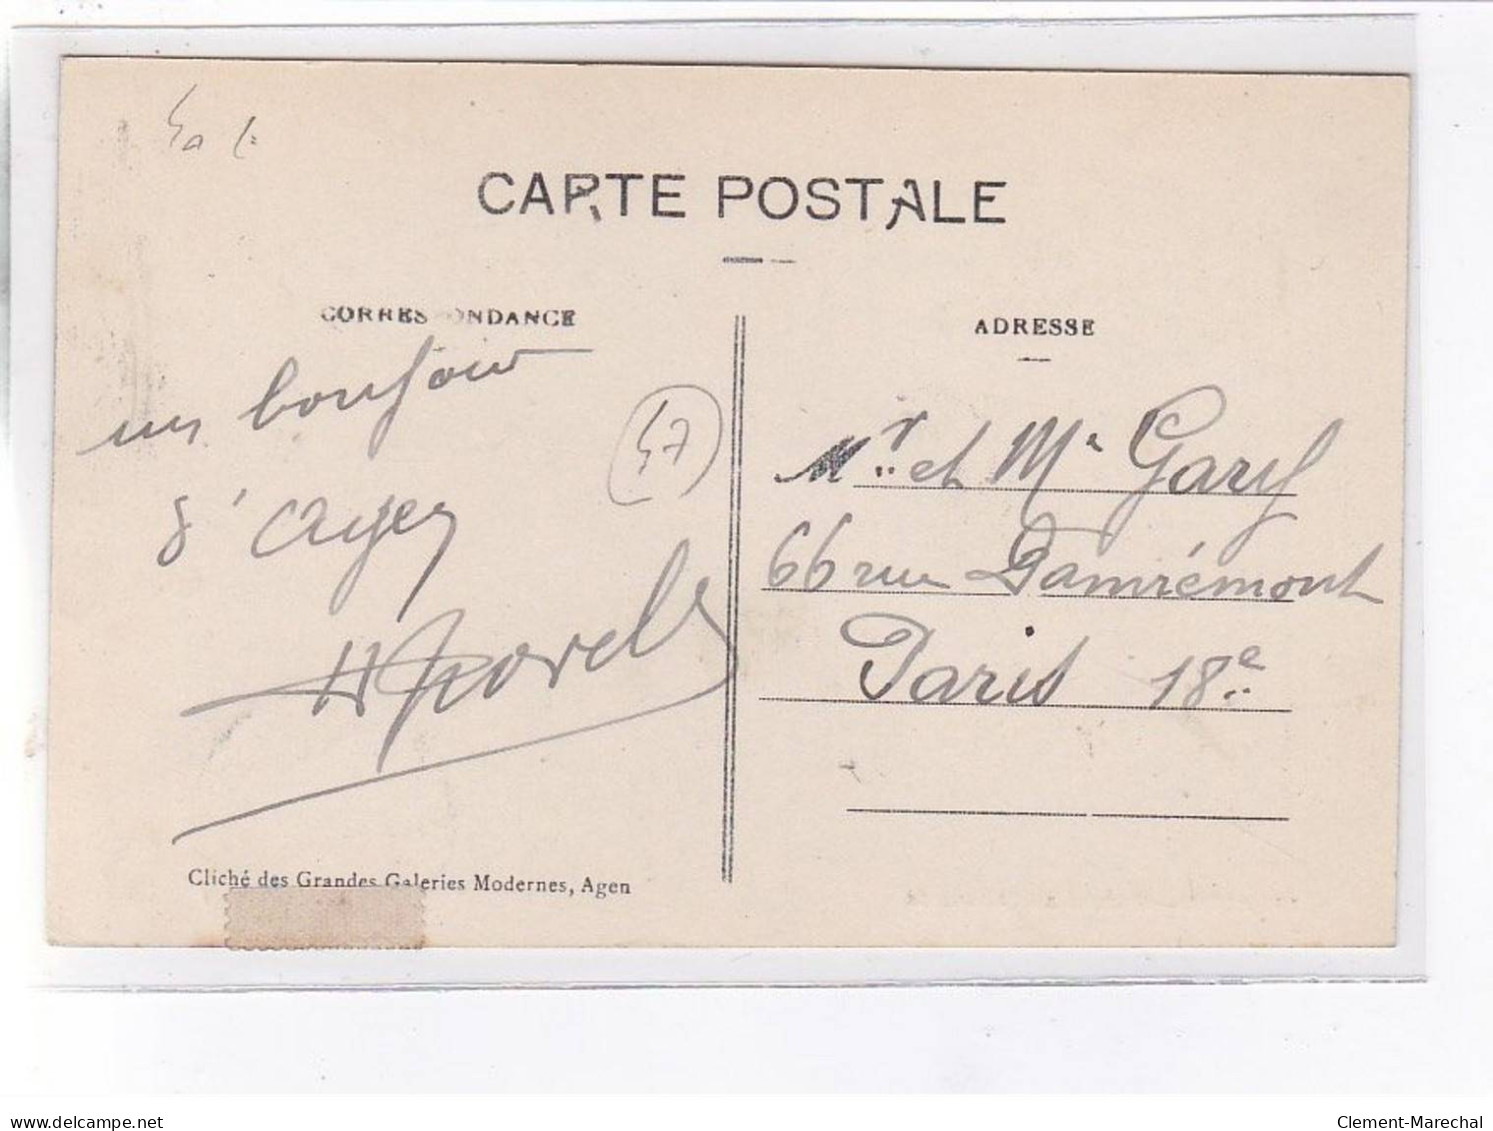 CARTE POSTALE
CORRESPONDANCE
un bonjour
d'Agen
47
ADRESSE
Mr et Me Gary
66 rue Damrémont
Paris 18e
Cliché des Grandes Galeries Modernes, Agen
delcampe.net
Clement-Marechal